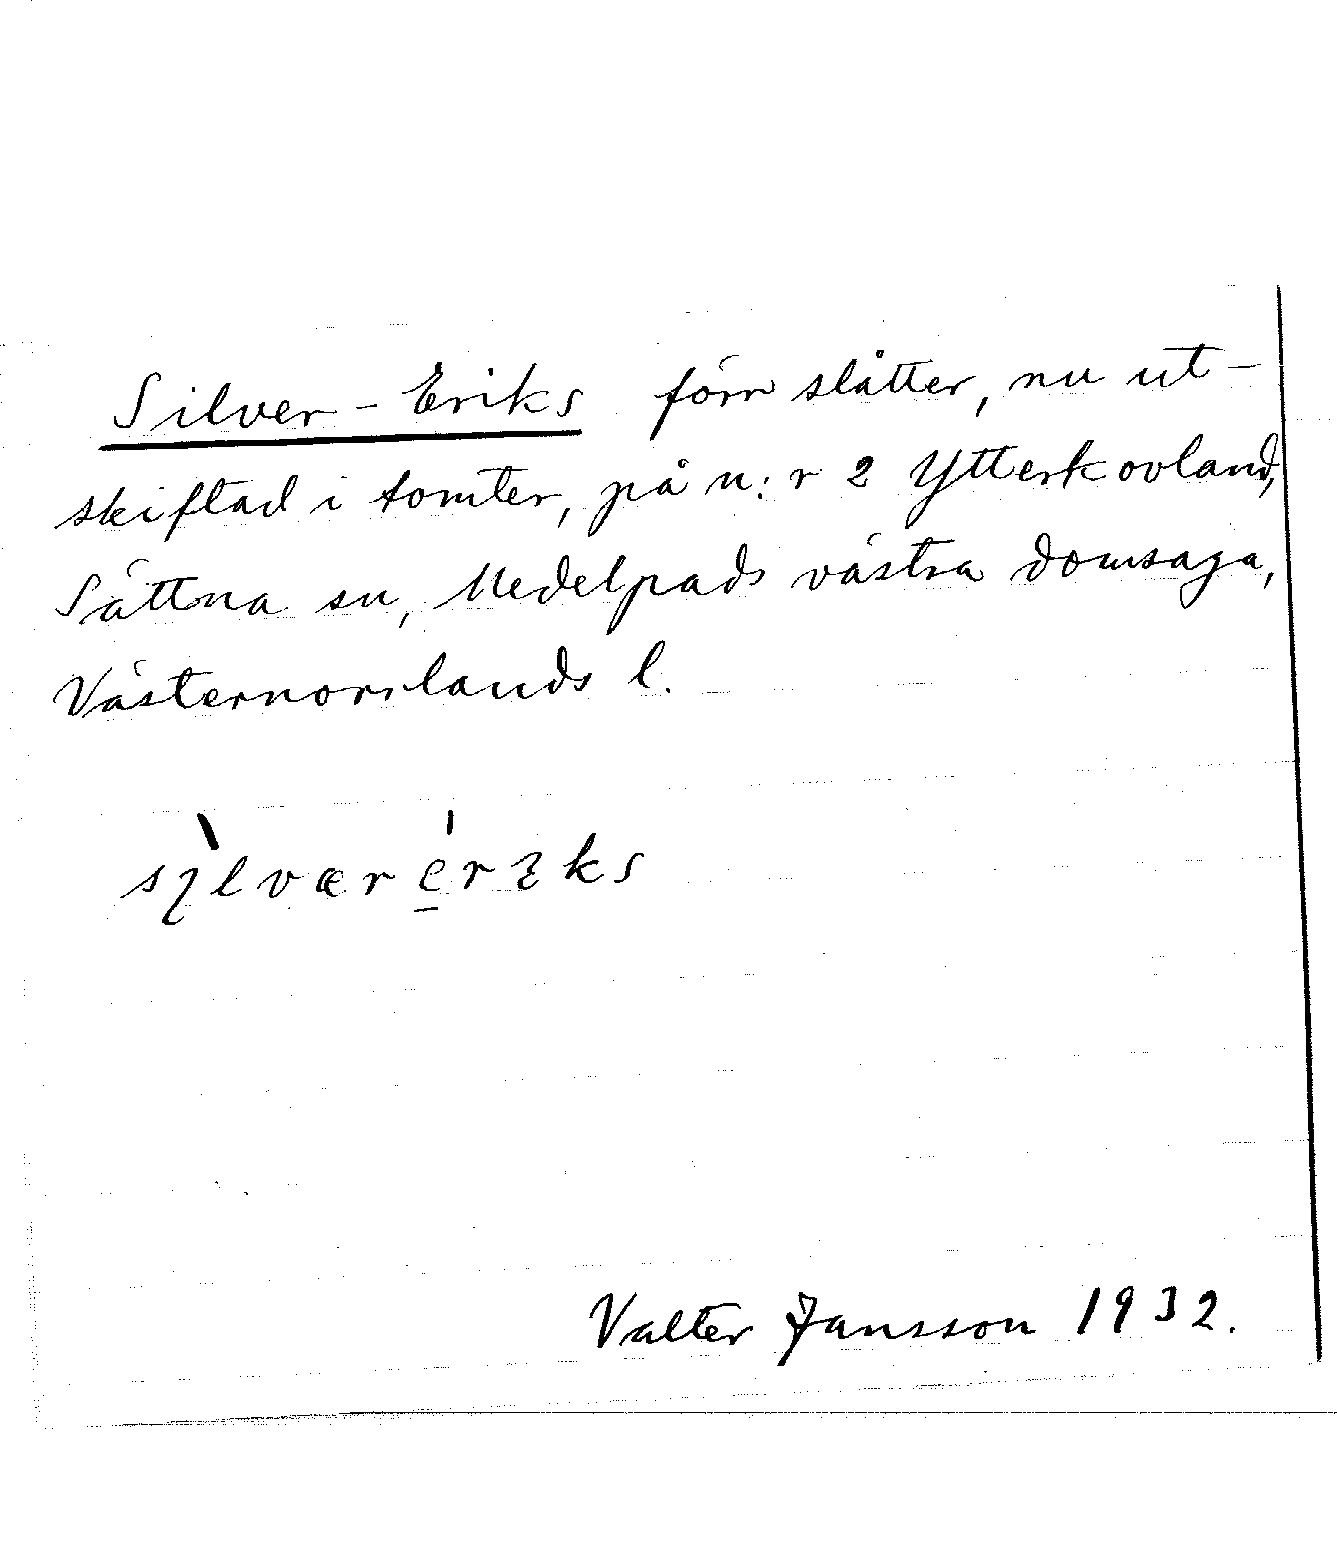 Silver-Eriks förr slåtter, nu ut-
skiftad i tomter, på n:r 2 Ytterkovland,
Sättna sn, Medelpads västra domsaga,
Västernorrlands l.
sı̨̀lvære̱̍rıks
Valter Jansson 1932.